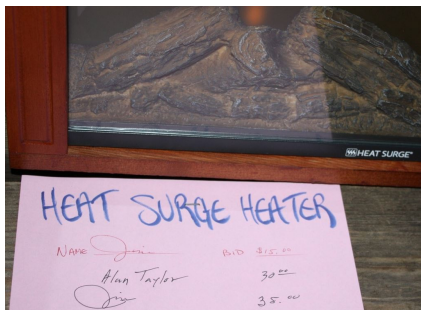 HEAT SURGE™
HEAT SURGE HEATER
NAME Jim BID $15.00
Alan Taylor 30.00
Jim 35.00